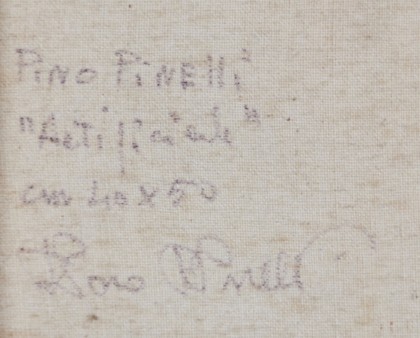 PINO PINELLI
"Artificiale"
cm 40 x 50
Pino Pinelli